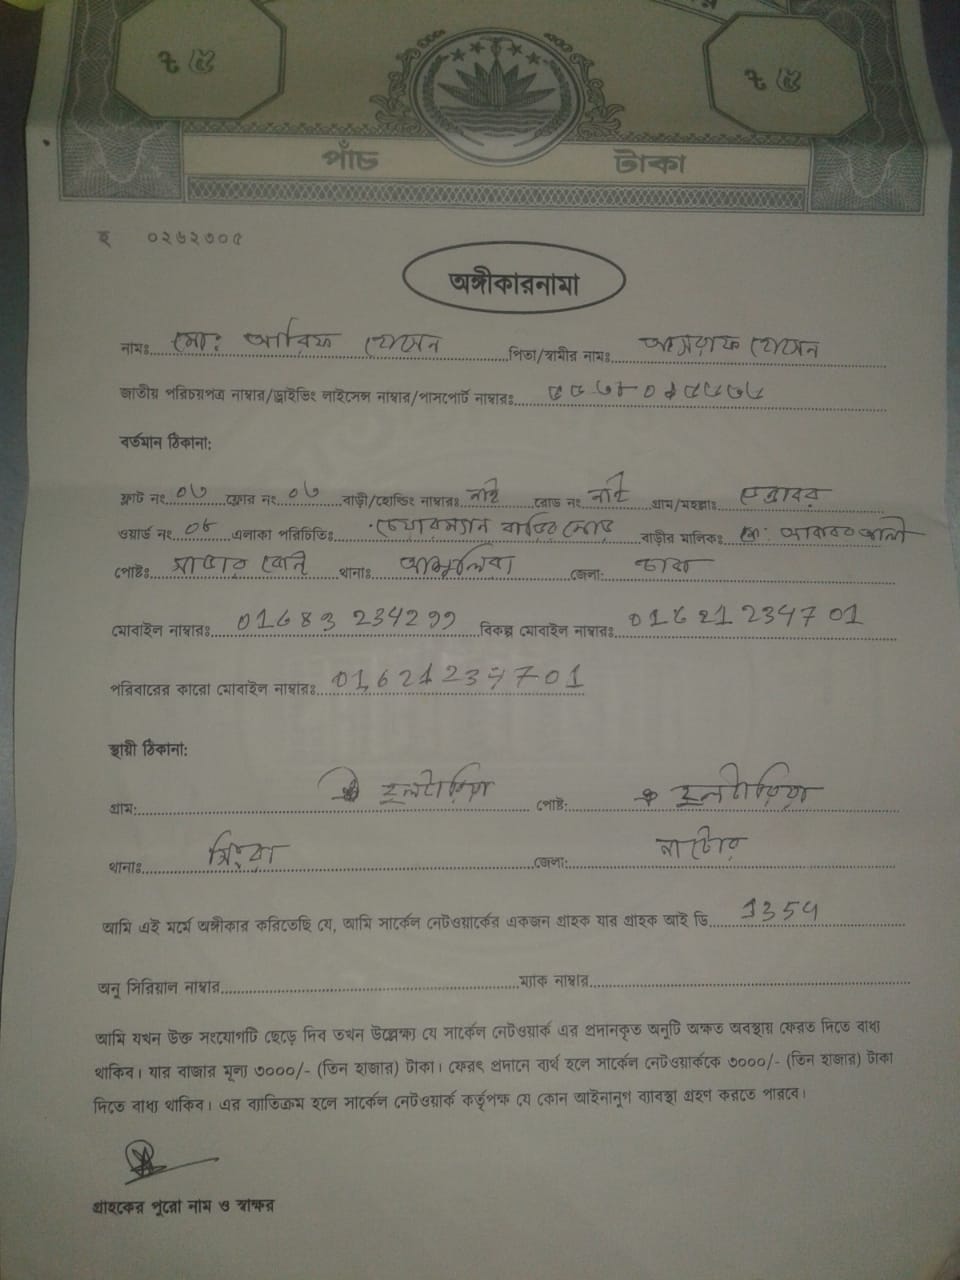 ৳ ৫ ৳ ৫
পাঁচ টাকা
হ ০২৬২৩০৫
অঙ্গীকারনামা
নামঃ মো: আরিফ হোসেন পিতা/স্বামীর নাম: আশরাফ হোসেন
জাতীয় পরিচয়পত্র নাম্বার/ড্রাইভিং লাইসেন্স নাম্বার/পাসপোর্ট নাম্বারঃ
বর্তমান ঠিকানা:
ফ্লাট নং ০৬ ফ্লোর নং ০৬ বাড়ী/হোল্ডিং নাম্বারঃ নাই রোড নং নাই গ্রাম/মহল্লাঃ
ওয়ার্ড নং ০৮ এলাকা পরিচিতিঃ চেয়ারম্যান বাড়ির মোড় বাড়ীর মালিকঃ মো:
পোষ্টঃ থানাঃ আশুলিয়া জেলা: ঢাকা
মোবাইল নাম্বারঃ 01683 234299 বিকল্প মোবাইল নাম্বারঃ 01621234701
পরিবারের কারো মোবাইল নাম্বারঃ 01621234701
স্থায়ী ঠিকানা:
গ্রাম: পোষ্ট:
থানাঃ সিংড়া জেলা: নাটোর
আমি এই মর্মে অঙ্গীকার করিতেছি যে, আমি সার্কেল নেটওয়ার্কের একজন গ্রাহক যার গ্রাহক আই ডি 1354
অনু সিরিয়াল নাম্বার ম্যাক নাম্বার
আমি যখন উক্ত সংযোগটি ছেড়ে দিব তখন উল্লেক্ষ্য যে সার্কেল নেটওয়ার্ক এর প্রদানকৃত অনুটি অক্ষত অবস্থায় ফেরত দিতে বাধ্য
থাকিব। যার বাজার মূল্য ৩০০০/- (তিন হাজার) টাকা। ফেরৎ প্রদানে ব্যর্থ হলে সার্কেল নেটওয়ার্ককে ৩০০০/- (তিন হাজার) টাকা
দিতে বাধ্য থাকিব। এর ব্যাতিক্রম হলে সার্কেল নেটওয়ার্ক কর্তৃপক্ষ যে কোন আইনানুগ ব্যাবস্থা গ্রহণ করতে পারবে।
গ্রাহকের পুরো নাম ও স্বাক্ষর